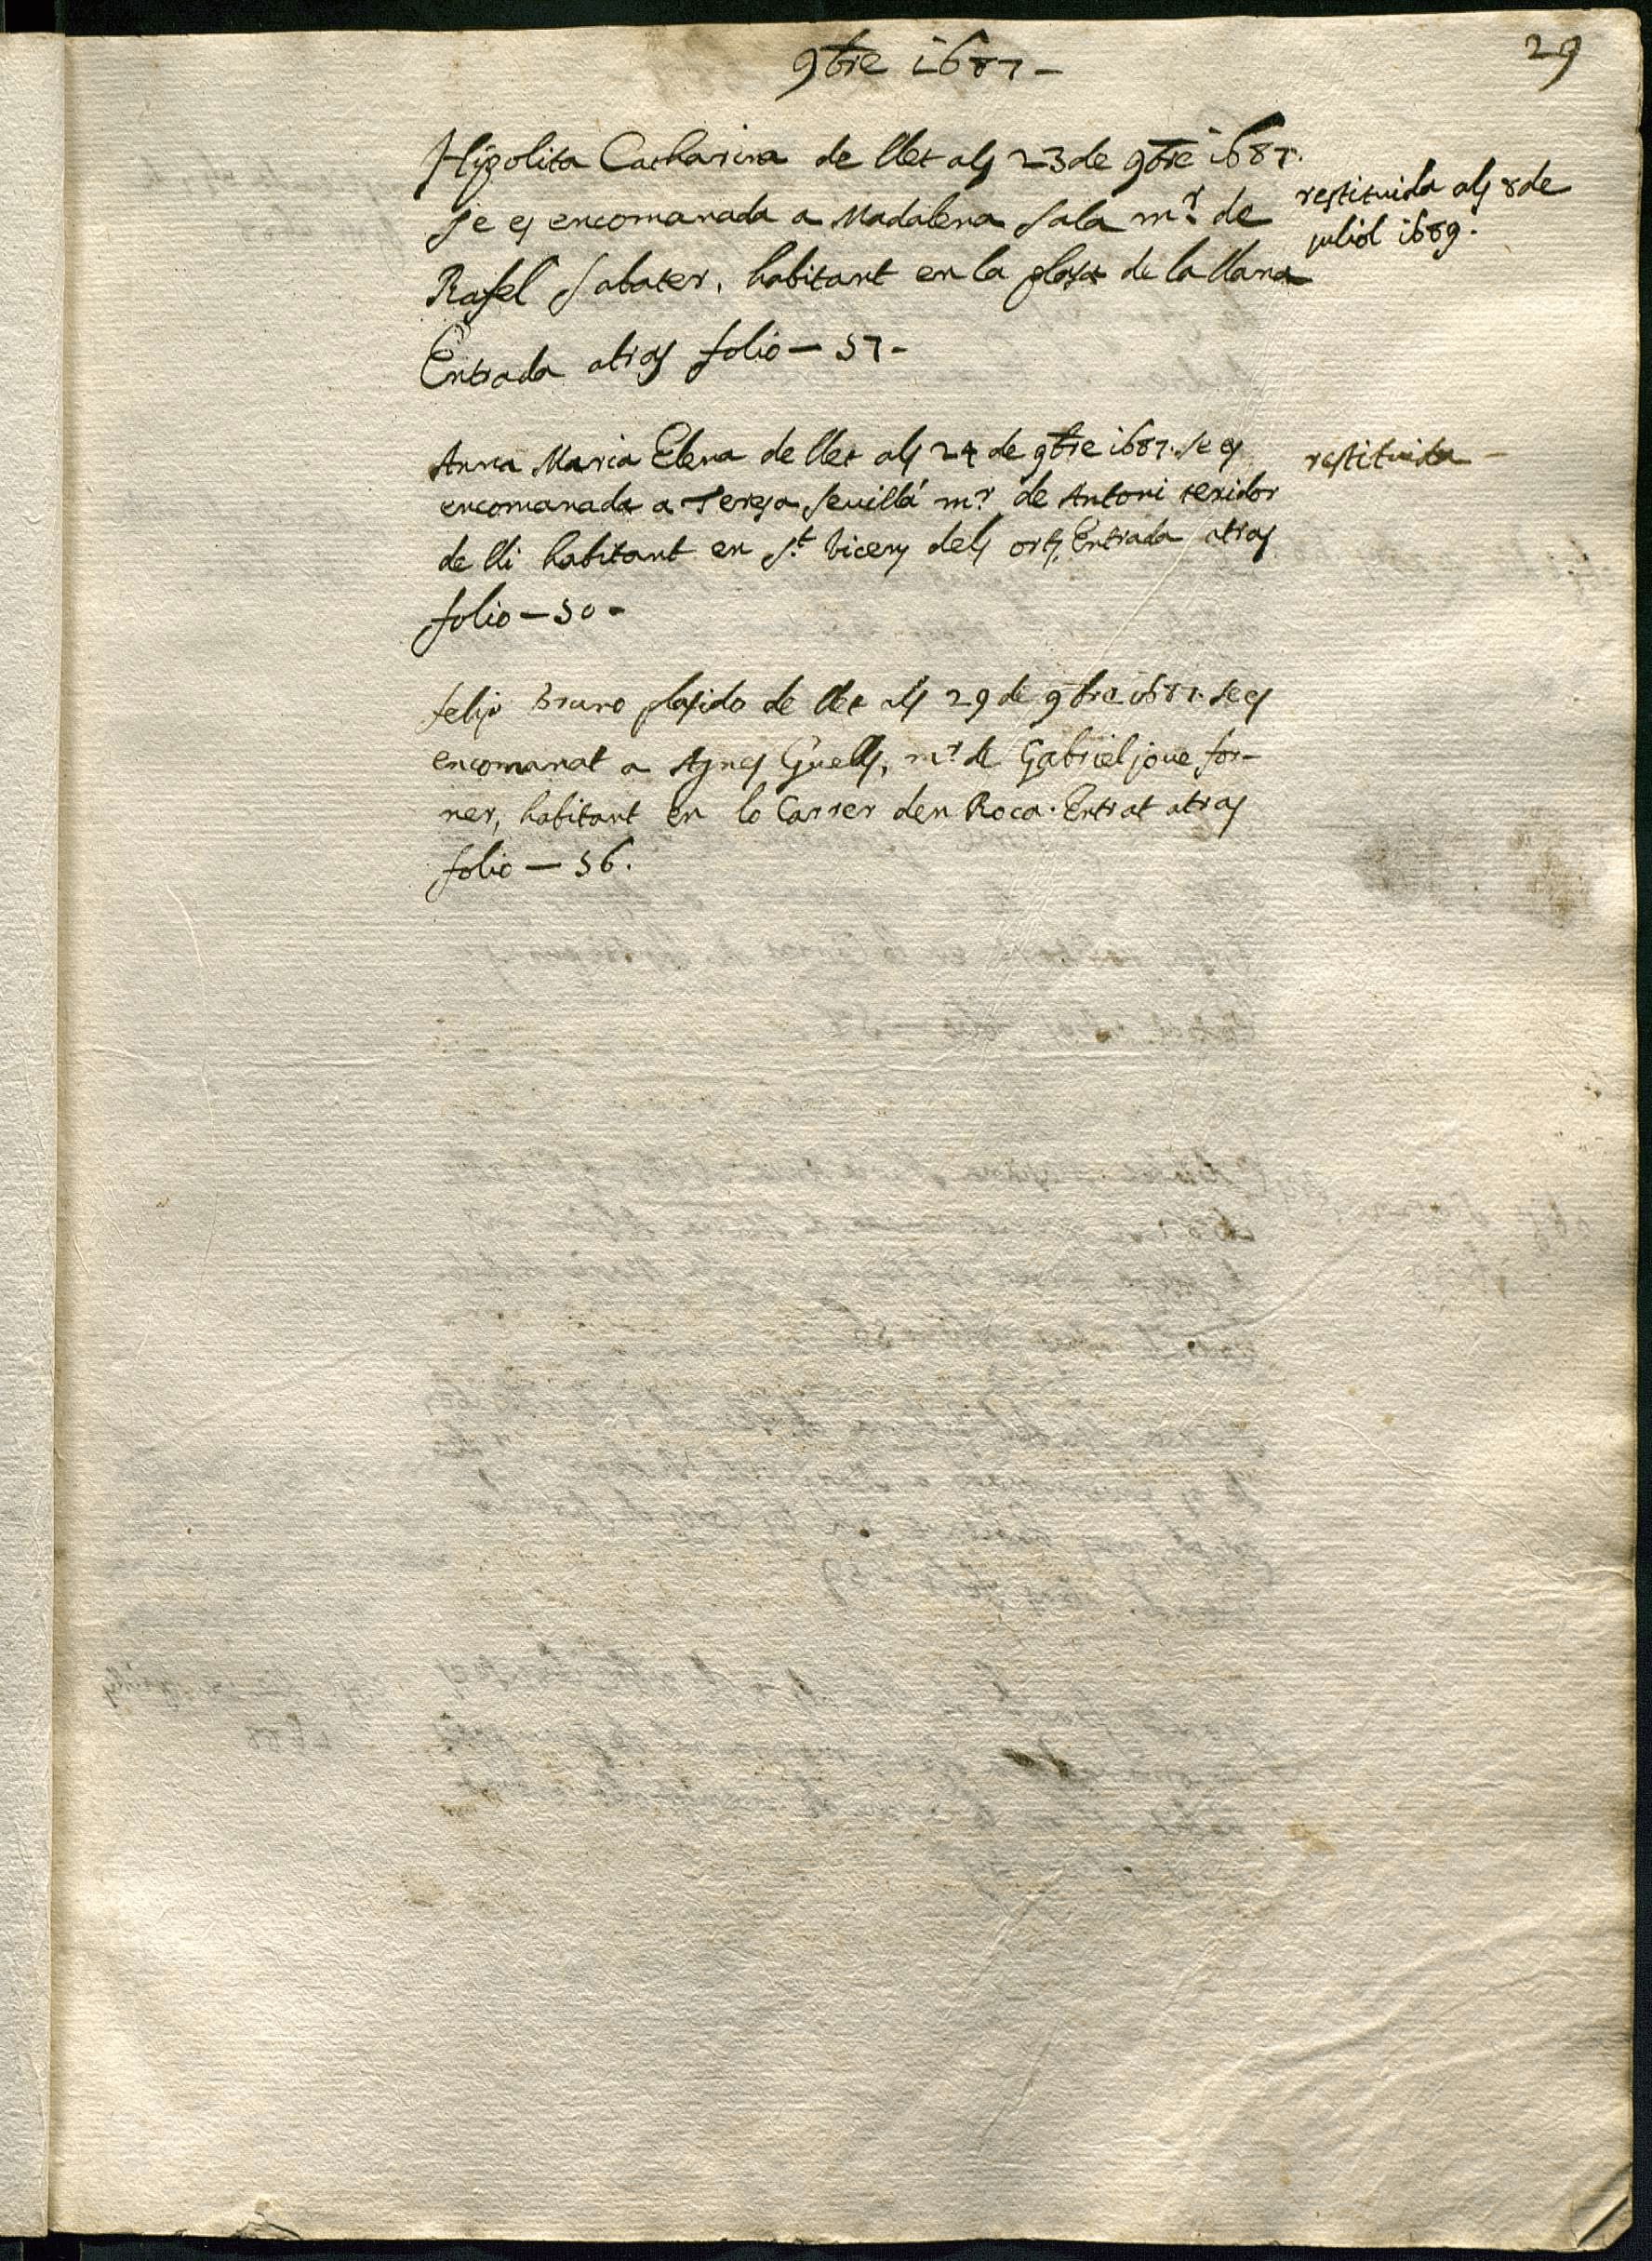 9bre 1687 -
29
Hipolita Catharina de llet als 23 de 9bre 1687.
se es encomanada a Madalena Sala mr. de
Rafel Sabater, habitant en la plasa de la llana
Entrada atras folio - 57 -
restituida als 8 de
juliol 1689.
Anna Maria Elena de llet als 24 de 9bre 1687. se es
encomanada a Teresa Sevillá mr. de Antoni texidor
de lli habitant en St. Vicens dels orts, Entrada atras
folio - 50 -
restituida -
felip Bruno plasido de llet als 29 de 9bre 1687. se es
encomanat a Agnes Guells, mr. de Gabriel joue for-
ner, habitant en lo Carrer den Roca. Entrat atras
folio - 56.